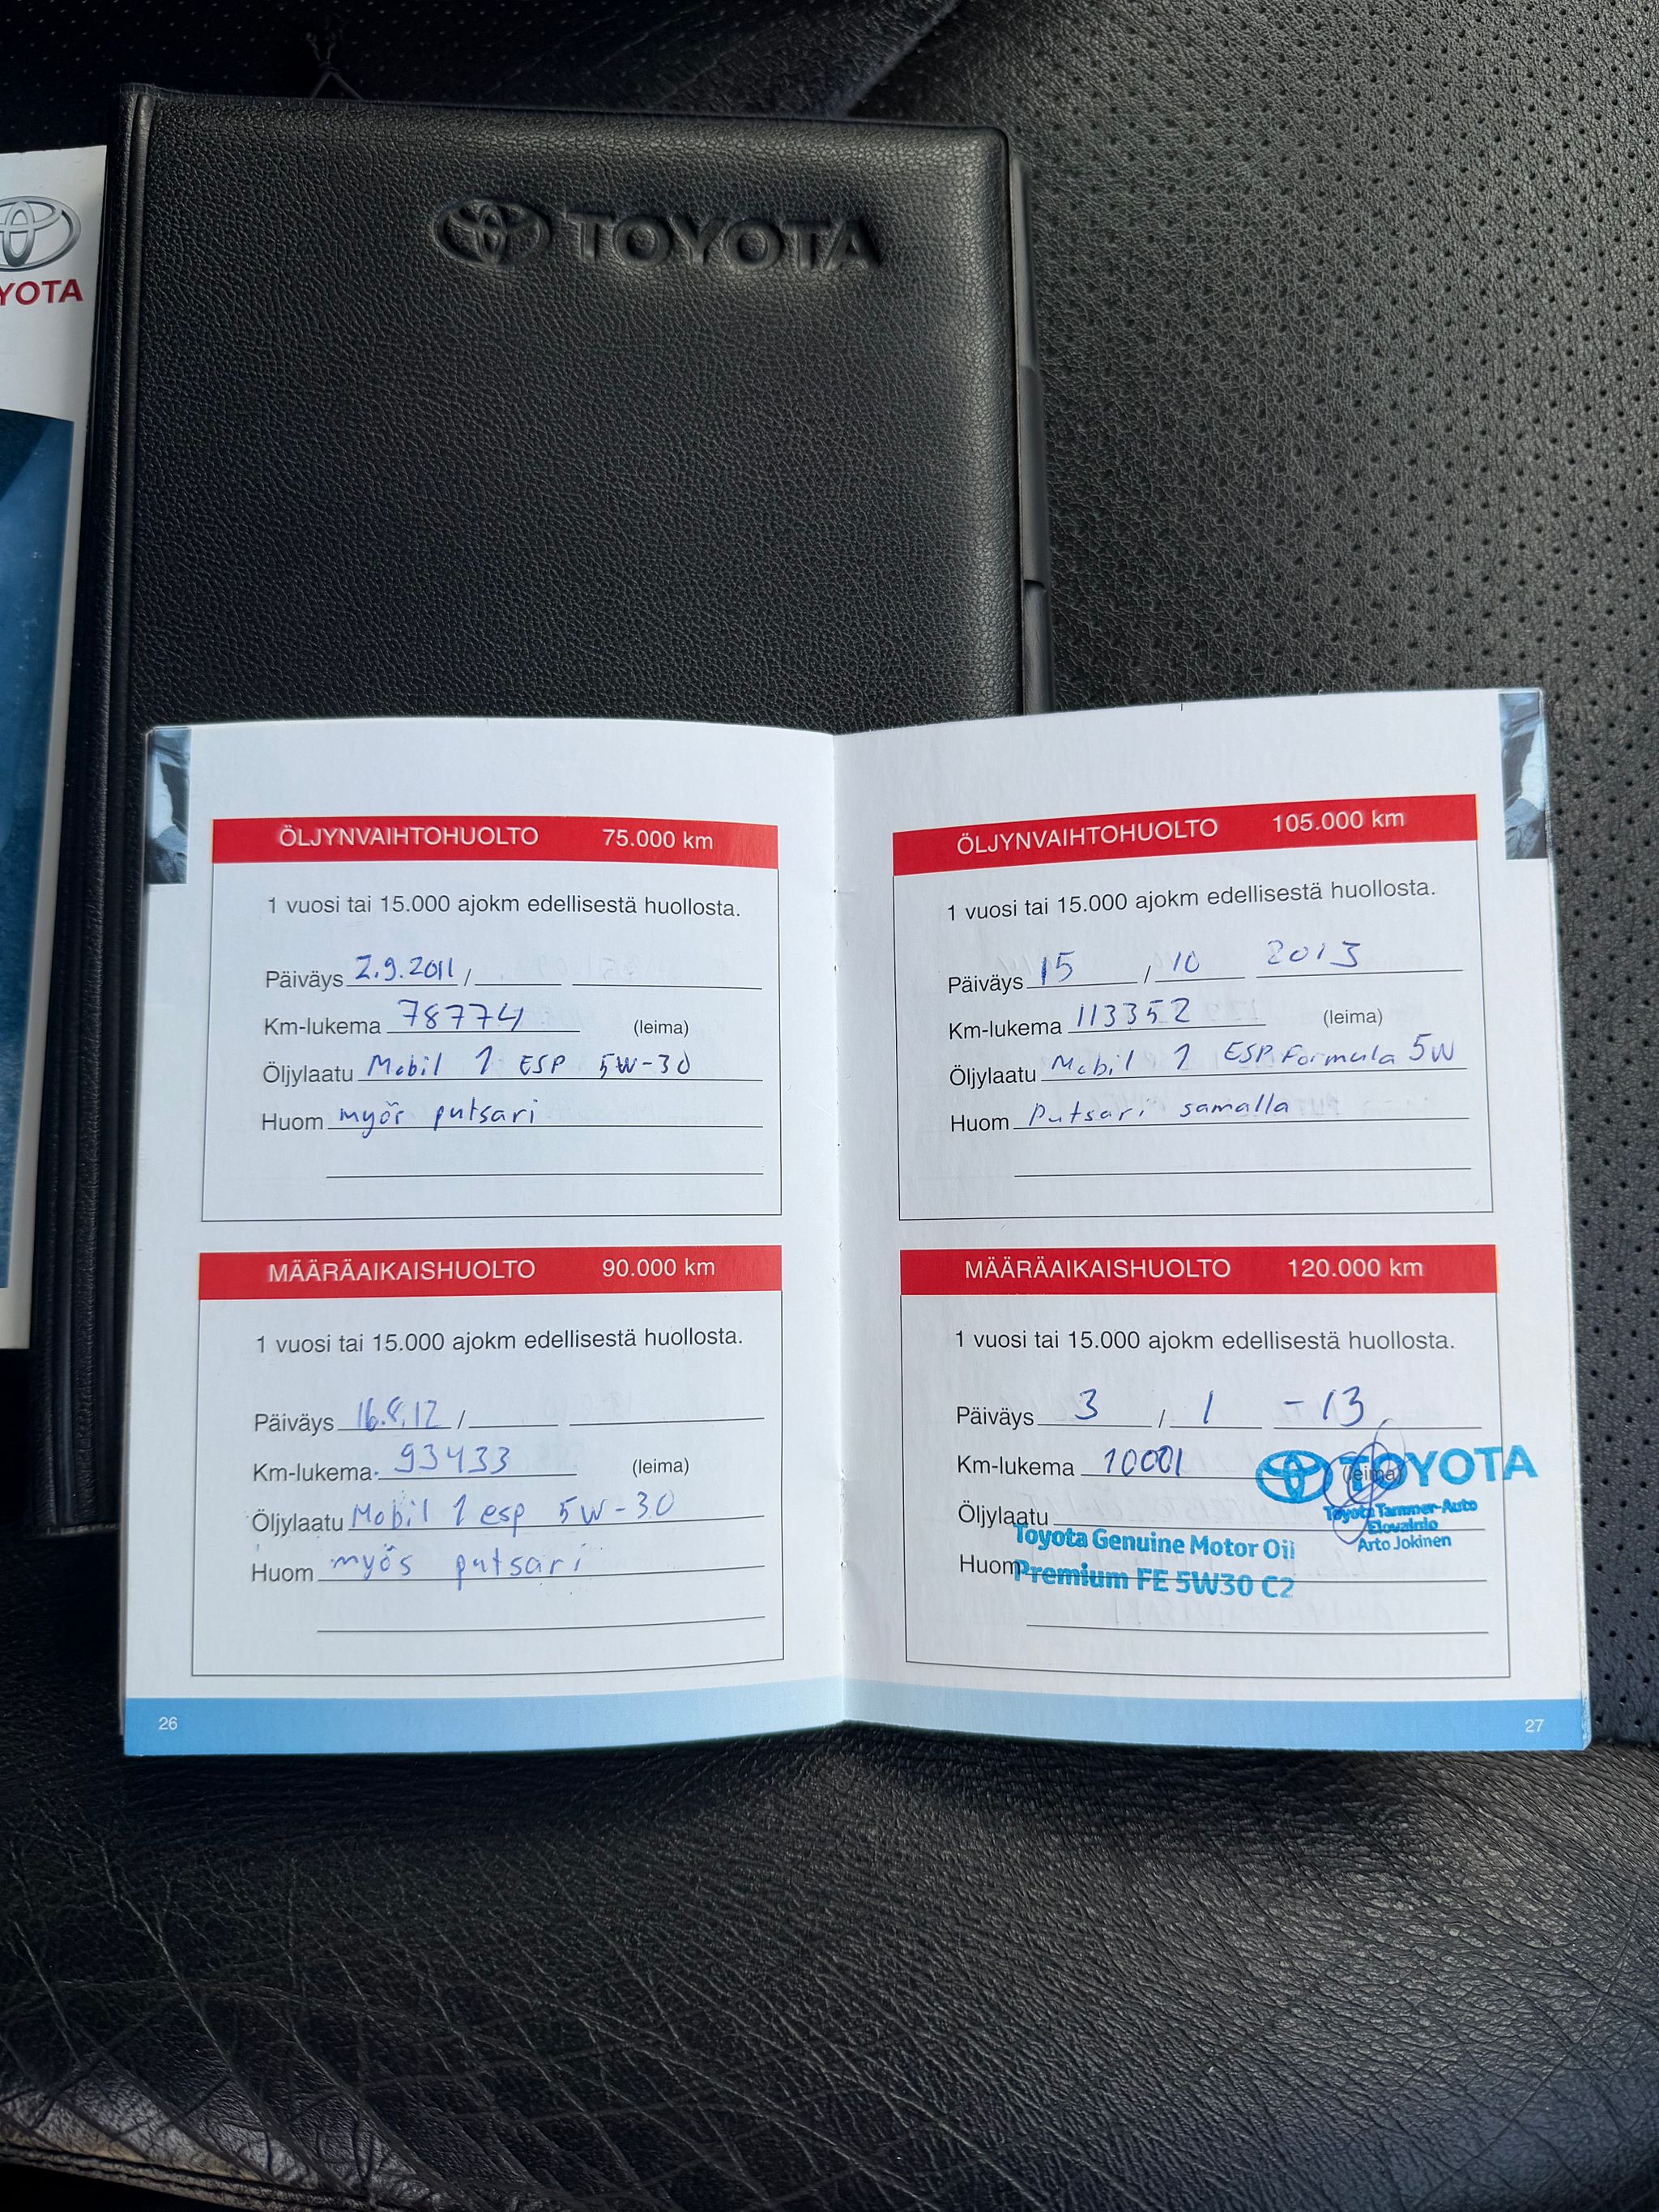 YOTA
TOYOTA
ÖLJYNVAIHTOHUOLTO 75.000 km
1 vuosi tai 15.000 ajokm edellisestä huollosta.
Päiväys 2.9.2011 /
Km-lukema 78774 (leima)
Öljylaatu Mobil 1 ESP 5W-30
Huom myös putsari
MÄÄRÄAIKAISHUOLTO 90.000 km
1 vuosi tai 15.000 ajokm edellisestä huollosta.
Päiväys 16.8.12 /
Km-lukema 93433 (leima)
Öljylaatu Mobil 1 esp 5W-30
Huom myös putsari
26
ÖLJYNVAIHTOHUOLTO 105.000 km
1 vuosi tai 15.000 ajokm edellisestä huollosta.
Päiväys 15 / 10 2013
Km-lukema 113352 (leima)
Öljylaatu Mobil 1 ESP Formula 5W
Huom Putsari samalla
MÄÄRÄAIKAISHUOLTO 120.000 km
1 vuosi tai 15.000 ajokm edellisestä huollosta.
Päiväys 3 / 1 -13
Km-lukema 10001 (leima) TOYOTA
Toyota Tammer-Auto
Elovainio
Arto Jokinen
Öljylaatu
Toyota Genuine Motor Oil
Huom Premium FE 5W30 C2
27